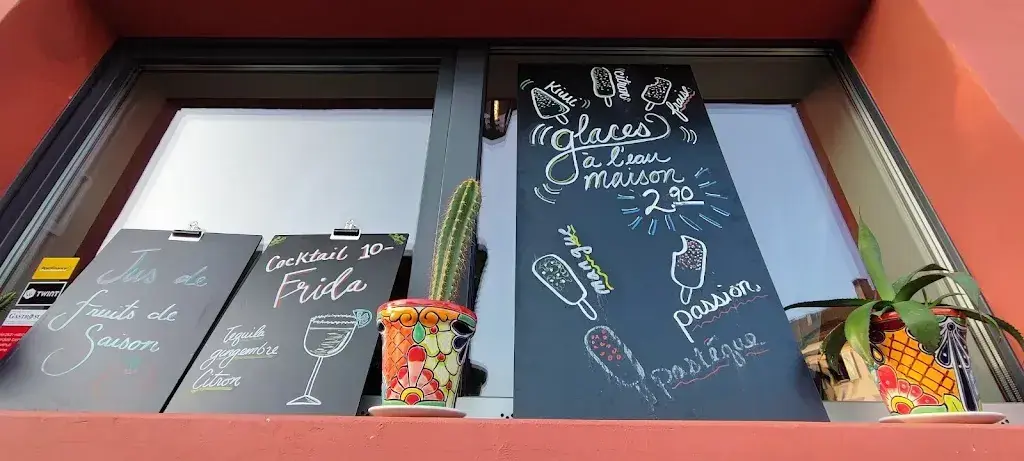 PostFinance
TWINT
Jus de
fruits de
Saison
Cocktail 10-
Frida
Tequila
gingembre
Citron
Kiwi
fraise
glaces
à l'eau
maison
2.90
mangue
passion
pastèque